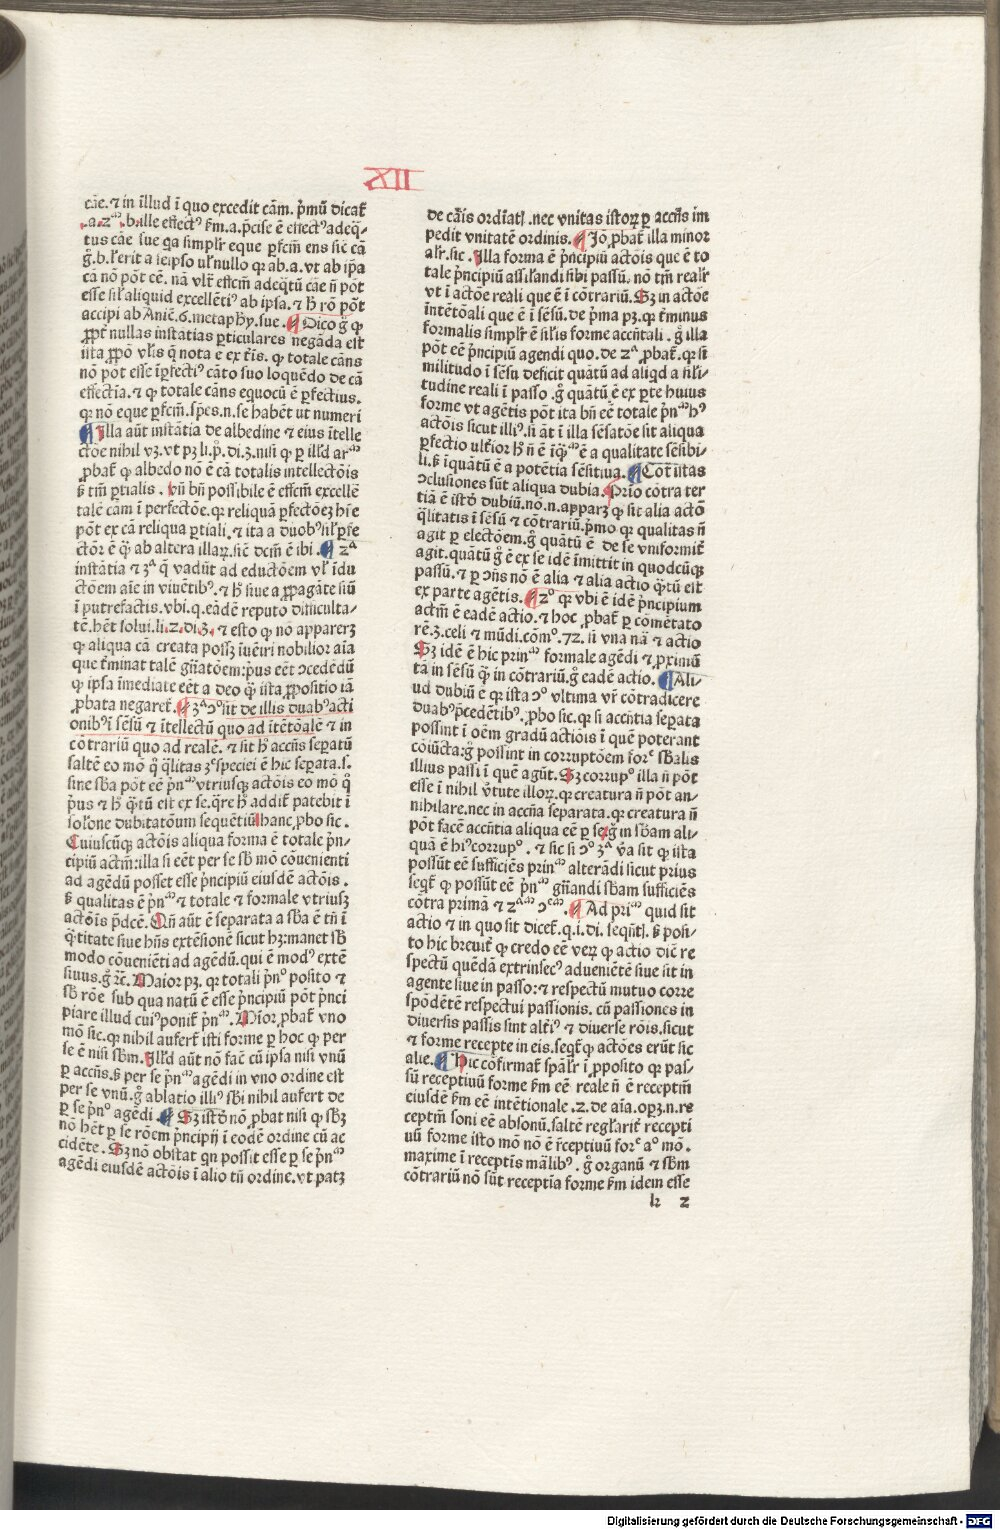 XII
cāe. ⁊ in illud ī quo excedit cām. p̄mū dicat̄
.a. zᵐ .b. ille effectꝰ ẜm .a. p̄cise ē effectꝰ adeq̄-
tus cāe sue q̄a simplr̄ eque ꝑfcm̄ ens sic̄ cā
ḡ .b. l'erit a seipso ul' nullo qr ab .a. vt ab ip̄a
cā nō pōt eē. nā vlt̄ effcm̄ adeq̄tū cāe n̄ pōt
esse sil' aliquid excellētiꝰ ab ipsa. ⁊ h̄ rō pōt
accipi ab Auic̄. 6. metaphy. sue. Dico ḡ ꝙ
ꝓpt̄ nullas instātias ꝑticulares negāda est
ista ꝓpō vl'is q̄ nota e ex t̄is. ꝙ totale cāns
nō pōt esse īꝑfectiꝰ cāto suo loquēdo de cā
effectīa. ⁊ ꝙ totale cāns equocū ē ꝑfectius.
qr nō eque ꝑfcm̄. sp̄es .n. se habēt ut numeri
Illa aūt instātia de albedine ⁊ eius ītelle
ctōe nihil vꝫ. vt pꝫ li. p̄. di. 3. nisi ꝙ ꝑ ill'd arᵐ
ꝓbat̄ ꝙ albedo nō ē cā totalis intellectōis
ẜ tm̄ ꝑtialis. vn̄ bn̄ possibile ē effcm̄ excellē
talē cām ī perfectōe. qr reliquā ꝑfectōeꝫ hr̄e
pōt ex cā reliqua ꝑtiali. ⁊ ita a duobꝰ sil' ꝑfe
ctōr ē q̄ ab altera illaꝝ. sic̄ dcm̄ ē ibi. zᵃ
instātia ⁊ 3ᵃ q̄ vadūt ad eductōem vl' īdu
ctōem aīe in viuētibꝰ. ⁊ h̄ siue a ꝓpagāte siū
ī putrefactis. vbi .q. eādē reputo difficulta-
tē. hēt solui. li. z. di. 3. ⁊ esto ꝙ nō apparerꝫ
ꝙ aliqua cā creata possꝫ īuēiri nobilior aīa
que t̄minat talē gn̄atōem: p̄us eēt ↄcedēdū
ꝙ ipsa īmediate eēt a deo ꝙ ista ꝓpositio iā
ꝓbata negaret̄. 3ᵃ ↄᵒ sit de illis duabꝰ acti
onibꝰ ī sēsū ⁊ ītellectū quo ad ītētōalē ⁊ in
cōtrariū quo ad realē. ⁊ sit h̄ accn̄s sepatū
saltē eo mō q̄ q̄litas 3ᵉ speciei ē hic sepata. s.
sine sb̄a pōt eē p̄nᵐ vtriusqꝫ actōis eo mō q̄
p̄us ⁊ h̄ q̄tū est ex se. q̄re h̄ addit̄ patebit ī
sol'one dubitatōum sequētiū hanc ꝓbo sic.
Cuiuscūqꝫ actōis aliqua forma ē totale p̄n-
cipiū actm̄: illa si eēt per se sb̄ mō cōuenienti
ad agēdū posset esse p̄ncipiū eiusdē actōis.
ẜ qualitas ē p̄nᵐ ⁊ totale ⁊ formale vtriusꝫ
actōis p̄dcē. Qn̄ aūt ē separata a sb̄a ē tn̄ ī
q̄titate siue hn̄s extēsionē sicut hꝫ: manet sb̄
modo cōuenieti ad agēdū. qui ē modꝰ extē
siuus. ḡ ⁊c. Maior pꝫ. qr totali p̄nᵒ posito ⁊
sb̄ rōe sub qua natū ē esse p̄ncipiū pōt p̄nci
piare illud cuiꝰ ponit̄ p̄nᵐ. Mior ꝓbat̄ vno
mō sic. ꝙ nihil aufert̄ isti forme ꝑ hoc ꝙ per
se ē nisi sb̄m. Ill'd aūt nō fac̄ cū ipsa nisi vnū
ꝑ accn̄s. ẜ per se p̄nᵐ agēdi in vno ordine est
per se vnū. ḡ ablatio illiꝰ sb̄i nihil aufert de
ꝑ se p̄nᵒ agēdi. Sꝫ istd̄ nō ꝓbat nisi ꝙ sb̄ꝫ
nō hēt ꝑ se rōem p̄ncipij ī eodē ordine cū ac
cidēte. Sꝫ nō obstat qn possit esse ꝑ se p̄nᵐ
agēdi eiusdē actōis ī alio tn̄ ordine. vt patꝫ
de cāis ordīatꝭ. nec vnitas istoꝝ ꝑ accn̄s im
pedit vnitatē ordinis. Jō ꝓbat̄ illa minor
alr̄. sic. Illa forma ē p̄ncipiū actōis que ē to
tale p̄ncipiū assil'andi sibi passū. nō tm̄ realr̄
vt ī actōe reali que ē ī cōtrariū. Sꝫ in actōe
intētōali que ē ī sēsū. de p̄ma pꝫ. qr t̄minus
formalis simplr̄ ē sil'is forme accn̄tali. ḡ illa
pōt eē p̄ncipiū agendi quo. de zᵃ ꝓbat̄. qr si
militudo ī sēsu deficit quātū ad aliq̄d a sil'i-
tudine reali ī passo. ḡ quātū ē ex ꝑte huius
forme vt agētis pōt ita bn̄ eē totale p̄nᵐ hꝰ
actōis sicut illiꝰ. si āt ī illa sēsatōe sit aliqua
ꝑfectio ult̄ior h̄ n̄ ē īq̄ᵐ ē a qualitate sēsibi-
li. ẜ īquātū ē a potētia sēsitiua. Cōt̄ istas
ↄclusiones sūt aliqua dubia. Prīo cōtra ter
tiā ē istd̄ dubiū. nō .n. apparꝫ ꝙ sit alia actō
q̄litatis ī sēsū ⁊ cōtrariū. p̄mo qr qualitas n̄
agit ꝑ electōem. ḡ quātū ē de se vniformit̄
agit. quātū ḡ ē ex se idē īmittit in quodcūqꝫ
passū. ⁊ ꝑ ↄn̄s nō ē alia ⁊ alia actio q̄tū est
ex parte agētis. zᵒ qr vbi ē idē p̄ncipium
actm̄ ē eadē actio. ⁊ hoc ꝓbat̄ ꝑ cōmētato
rē. 3. celi ⁊ mūdi. cōmᵒ. 72. si vna nā ⁊ actio
Sꝫ idē ē hic prinᵐ formale agēdi ⁊ ꝓximū
tā in sēsū q̄ in cōtrariū. ḡ eadē actio. Ali-
ud dubiū ē qr ista ↄᵒ vltima vr̄ cōtradicere
duabꝰ p̄cedētibꝰ. ꝓbo sic. qr si accn̄tia sepata
possint ī oēm gradū actiōis ī quē poterant
cōiūcta: ḡ possint in corruptōem forᵉ sb̄alis
illius passi ī quē agūt. Sꝫ corrupᵒ illa n̄ pōt
esse ī nihil v̄tute illoꝝ. qr creatura n̄ pōt an-
nihilare. nec in accn̄a separata. qr creatura n̄
pōt facē accn̄tia aliqua eē ꝑ se. ḡ in sb̄am ali-
quā ē hiꝰ corrupᵒ. ⁊ sic si ↄᵒ 3ᵃ v̄a sit ꝙ ista
possūt eē sufficiēs prinᵐ alterādi sicut prius
seqt̄ ꝙ possūt eē p̄nᵐ gn̄andi sb̄am sufficiēs
cōtra primā ⁊ zᵃᵐ ↄᵉᵐ. Ad priᵐ quid sit
actio ⁊ in quo sit dicet̄ .q. i. di. seqn̄tꝭ. ẜ posi-
to hic breuit̄ ꝙ credo eē veꝝ ꝙ actio dic̄ re
spectū quēdā extrinsecꝰ adueniētē siue sit in
agente siue in passo: ⁊ respectū mutuo corre
spōdētē respectui passionis. cū passiones in
diuersis passis sint alt̄iꝰ ⁊ diuerse rōis. sicut
⁊ forme recepte in eis. seqt̄ ꝙ actōes erūt sic
alie. Hic cōfirmat̄ spāl'r ī ꝓposito qr pas-
sū receptiuū forme ẜm eē reale n̄ ē receptm̄
eiusdē ẜm eē intētionale. z. de aīa. opꝫ .n. re
ceptm̄ soni eē absonū. saltē regl'arit̄ recepti
uū forme isto mō nō ē r̄ceptiuū forᵉ aᵒ mō.
maxime ī receptīs māl'ibꝰ. ḡ organū ⁊ sb̄m
cōtrariū nō sūt receptīa forme ẜm idem esse
h z
Digitalisierung gefördert durch die Deutsche Forschungsgemeinschaft - DFG